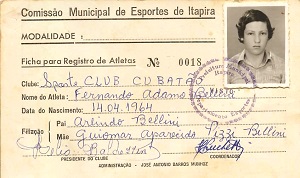 Comissão Municipal de Esportes de Itapira
MODALIDADE:
Ficha para Registro de Atletas Nº 0018
Clube: Sporte CLUB CUBATÃO
Nome do Atleta: Fernando Adamo Bellini
Data do Nascimento: 14.04.1964
Filiação Pai Arlindo Bellini
Mãe Guiomar Aparecida Pizzi Bellini
PRESIDENTE DO CLUBE COORDENADOR
ADMINISTRAÇÃO - JOSÉ ANTONIO BARROS MUNHOZ